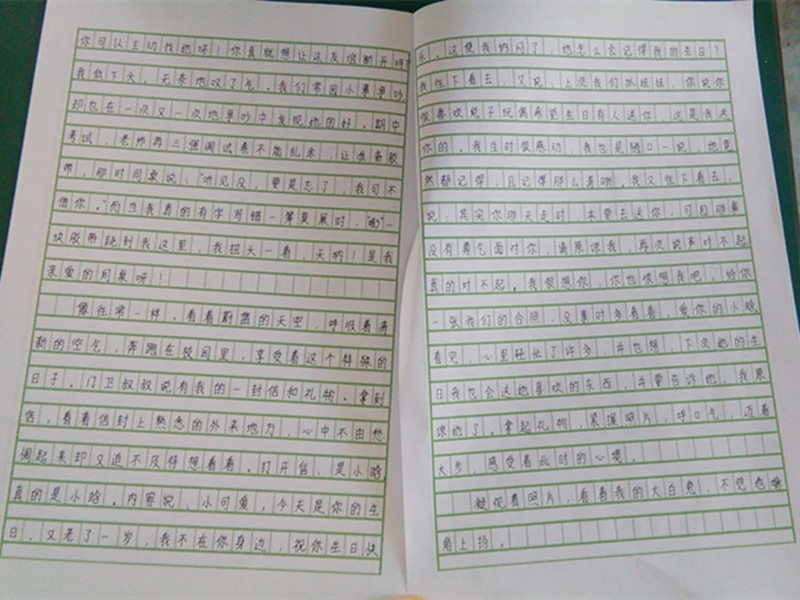 你可以主动找她呀！你真就想让这友谊断开吗？
我低下头，无奈地叹了气。我们常因小事争吵
却也在一次又一次地争吵中发现她的好。期中
考试，老师再三强调试卷不能乱来，让准备胶
带，那时同桌说，“听见没，要是忘了，我可不
借你。”而当我看的有字写错一筹莫展时，“嘭”一
块胶带跳到我这里，我扭头一看，天呐！是我
亲爱的同桌呀！
像往常一样，看着蔚蓝的天空，呼吸着清
新的空气，奔跑在校园里，享受着这个特殊的
日子。门卫叔叔说有我的一封信和礼物。拿到
信，看着信封上熟悉的外来地方，心中不由愁
闷起来却又迫不及待想看看。打开信，是小晗
真的是小晗。内容说，小可爱，今天是你的生
日，又老了一岁，我不在你身边，祝你生日快
乐。这使我纳闷了，她怎么会记得我的生日？
我往下看去，又说，上次我们抓娃娃，你说你
很喜欢兔子玩偶希望生日有人送你，这是我送
你的。我当时很感动，我也是随口一说，她竟
然都记得，且记得那么清晰。我又往下看去，
说，其实你那天走时，本要去送你，可因那事
没有勇气面对你，请原谅我，再次说声对不起
真的对不起。我很想你，你也很想我吧，给你
一张我们的合照，没事时多看看，爱你的小晗
看完，心里轻松了许多，并也想，下次她的生
日我也会送她喜欢的东西，并要告诉她，我原
谅她了。拿起礼物，紧握照片，呼口气，迈着
大步，感受着此时的心境。
凝视着照片，看着我的大白兔，不觉想嘴
角上扬。